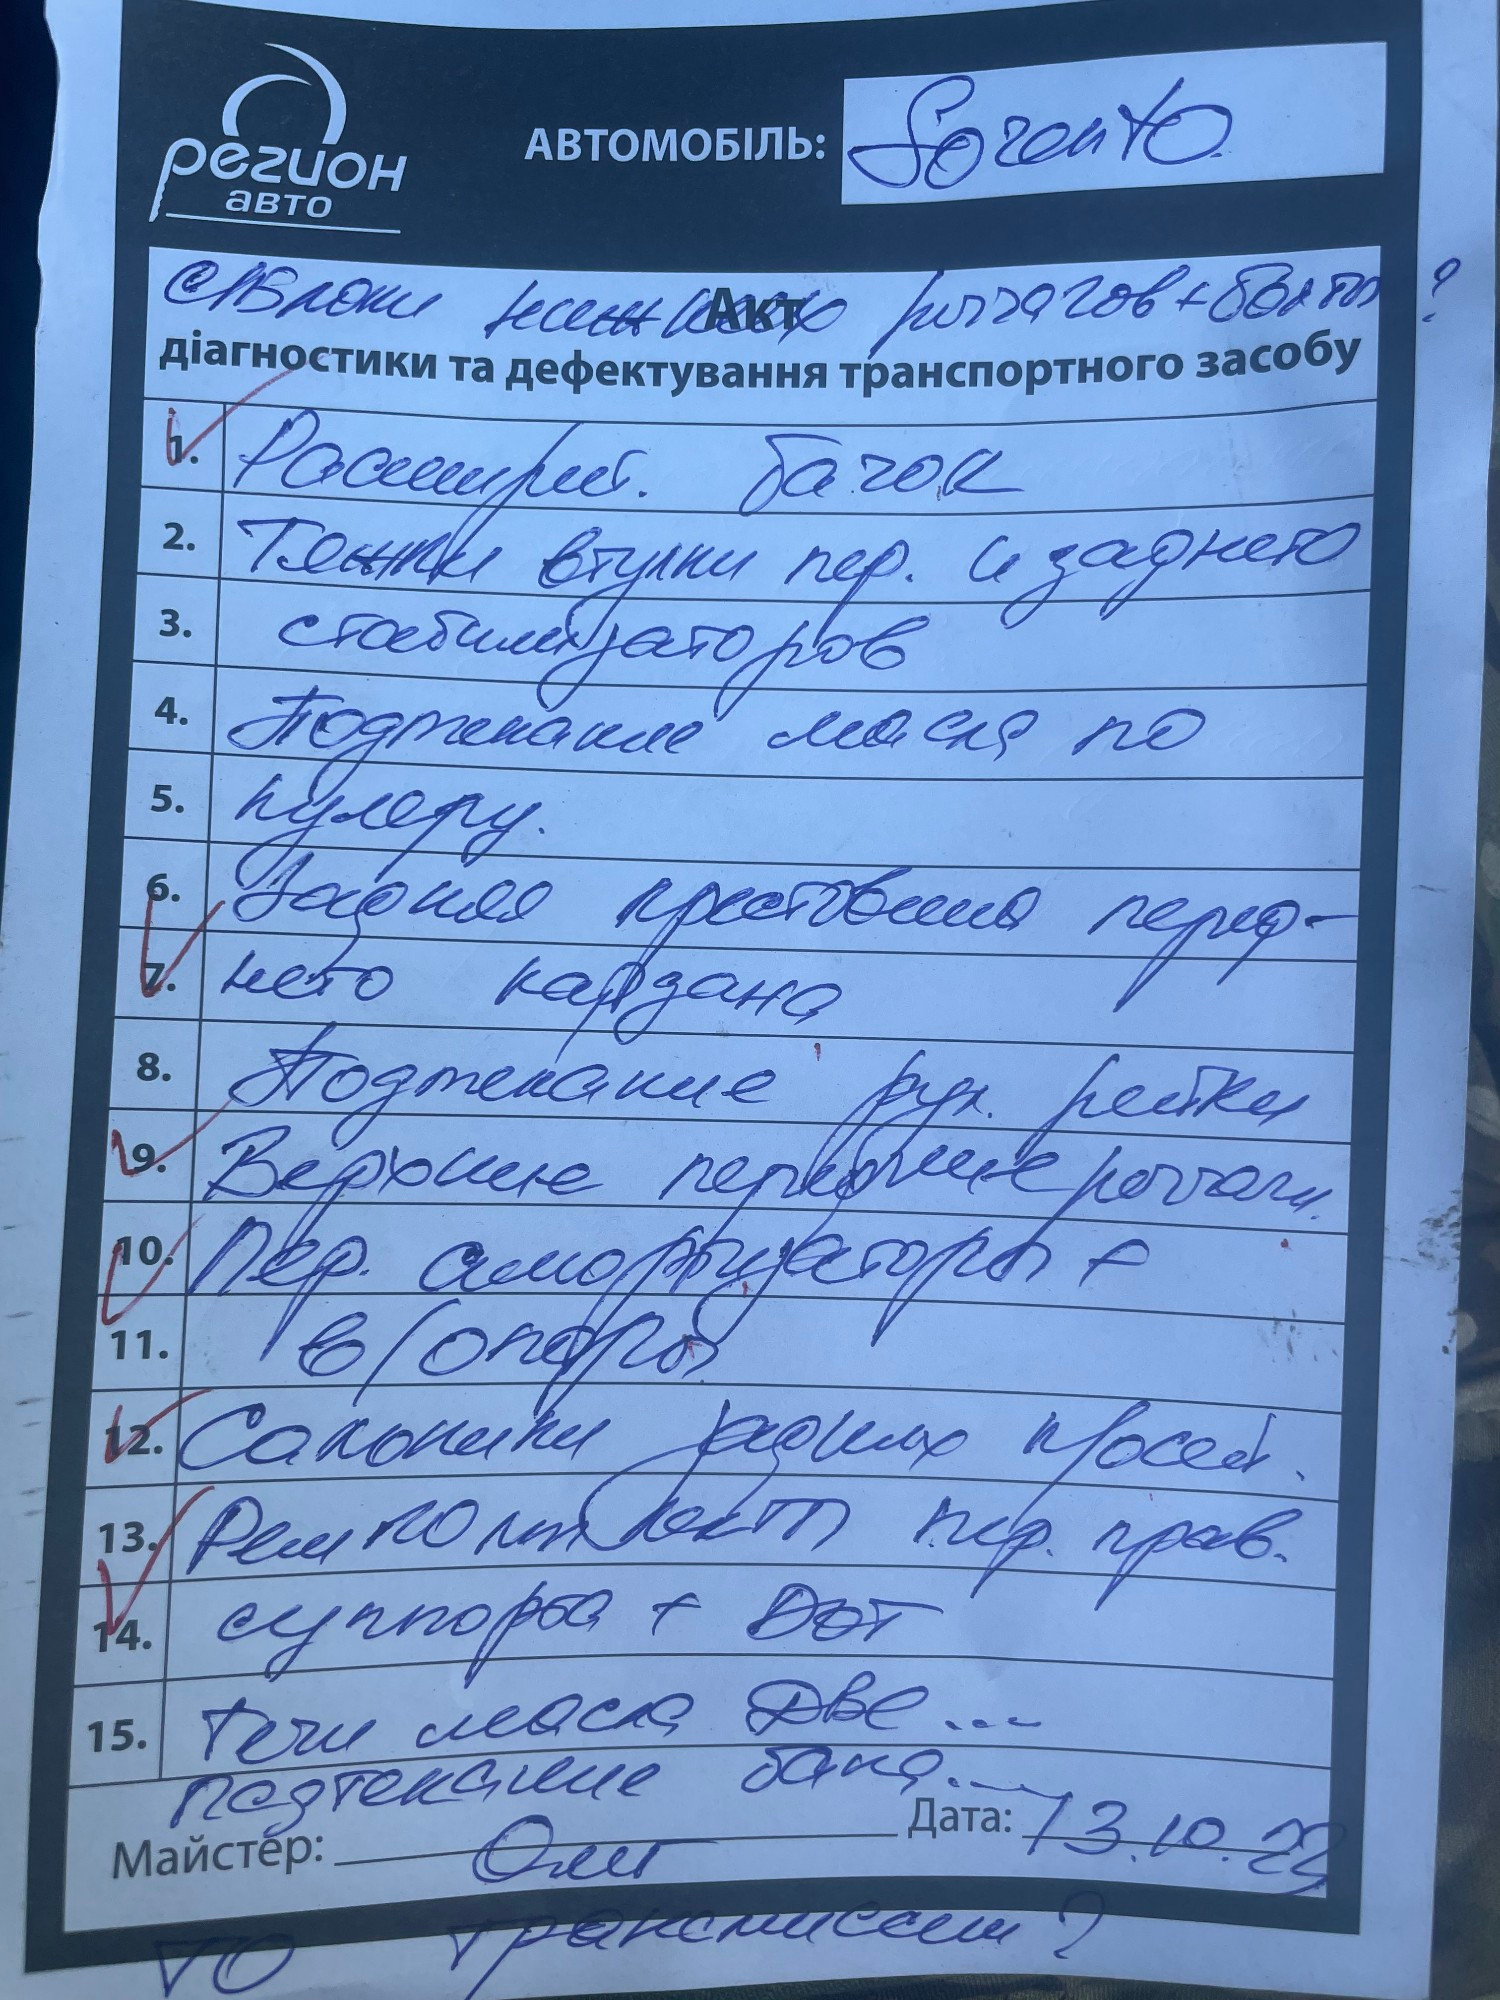 регион
авто
АВТОМОБІЛЬ: Sorento
с/блоки нижних рычагов + болты ?
Акт
діагностики та дефектування транспортного засобу
1. Расширит. бачок
2. Тяжки втулки пер. и заднего
3. стабилизаторов
4. Подтекание масла по
5. кулеру.
6. Задняя крестовина перед-
7. него кардана
8. Подтекание рул. рейки
9. Верхние передние рычаги.
10. Пер. амортизаторы +
11. в/опоры
12. Сальники задних полосей.
13. Рем комплект пер. прав.
14. суппорта + Dот
15. Течи масла Две ...
Подтекание бака ...
Майстер: Олег Дата: 13.10.22
ТО трансмиссии ?